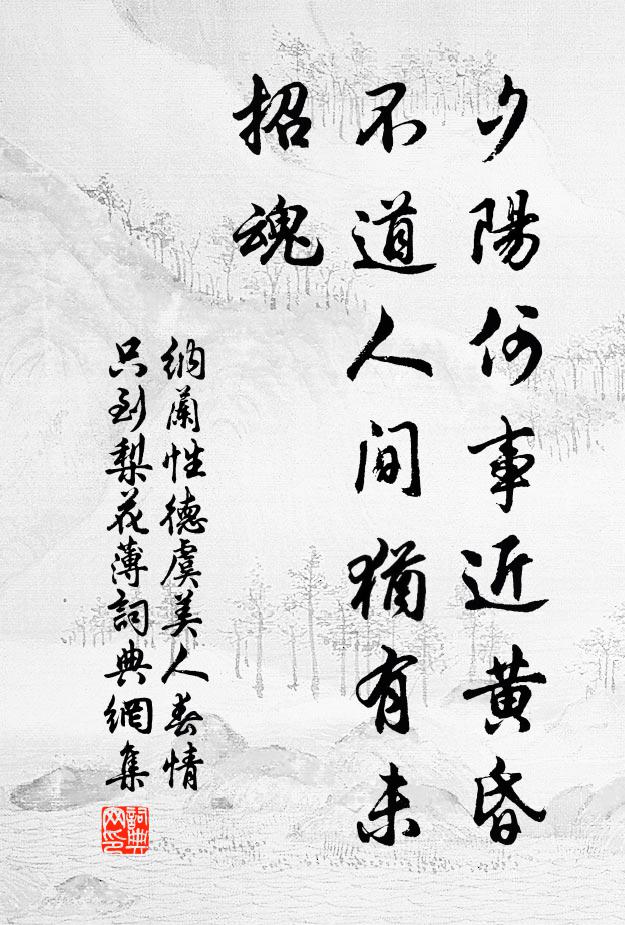 夕陽何事近黄昏
不道人間猶有未
招魂
納蘭性德虞美人春情
只到梨花薄詞典網集
詞典
网印